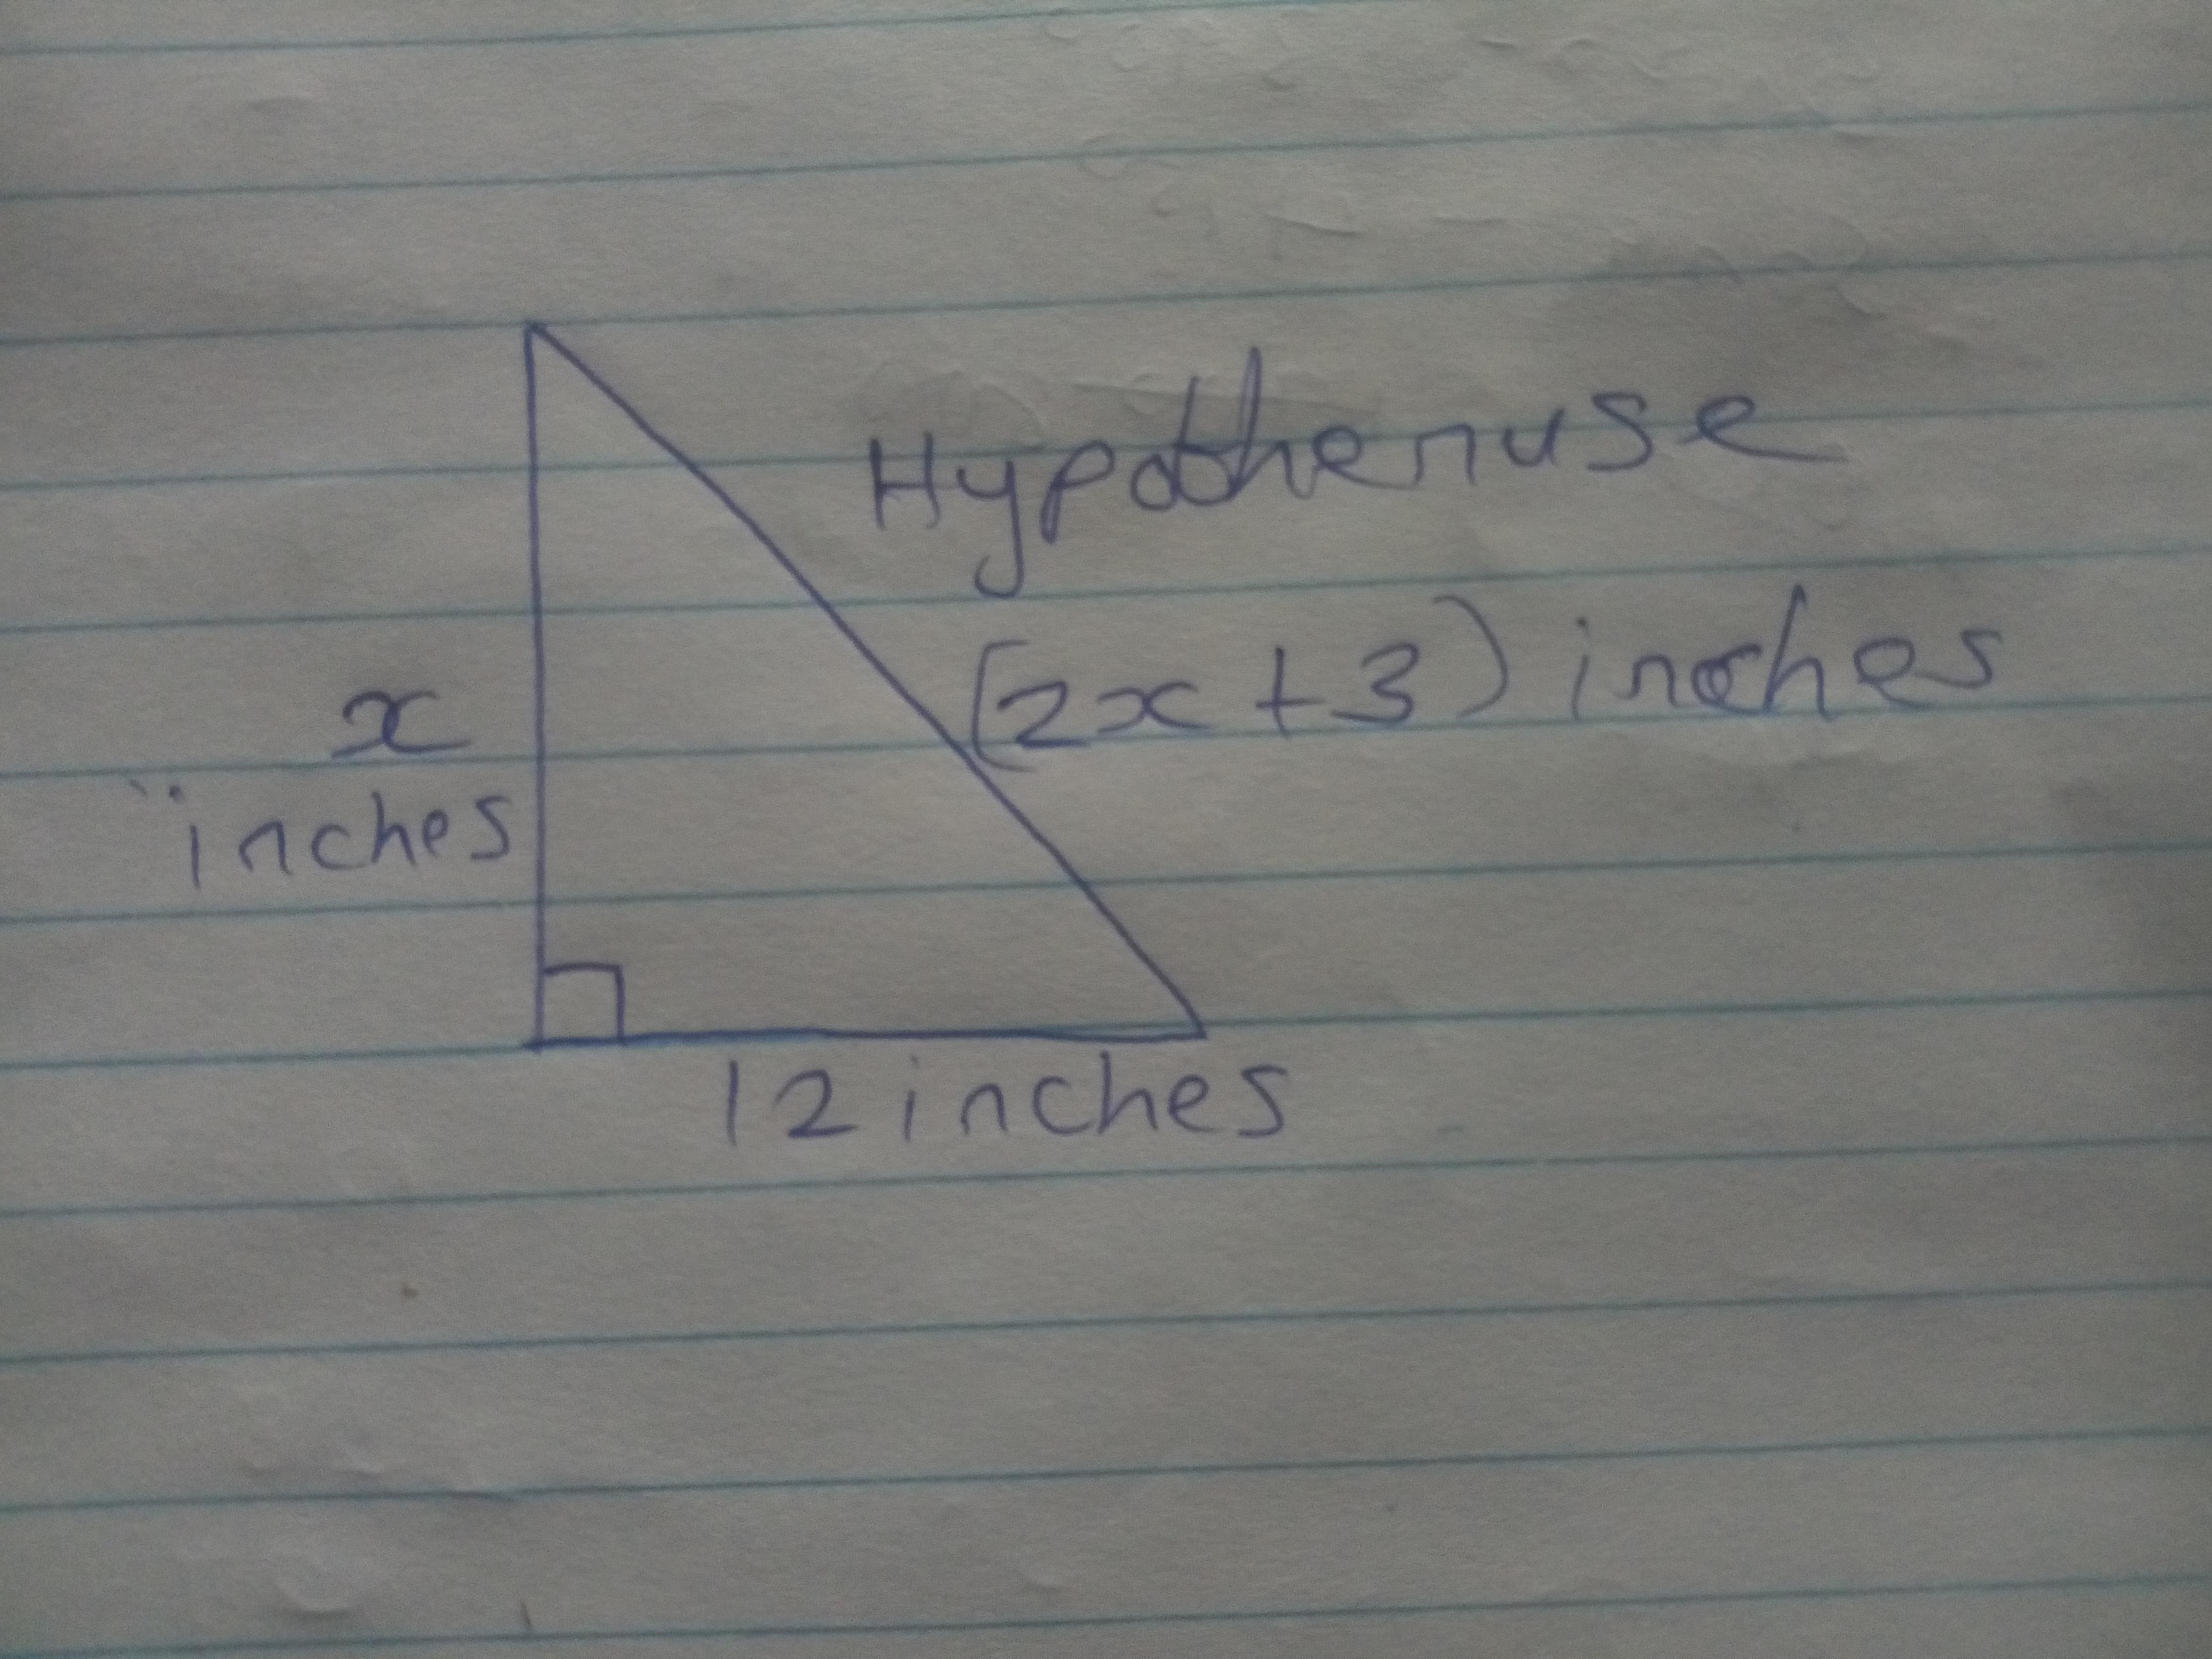 Hypothenuse
(2x + 3) inches
x
inches
12 inches